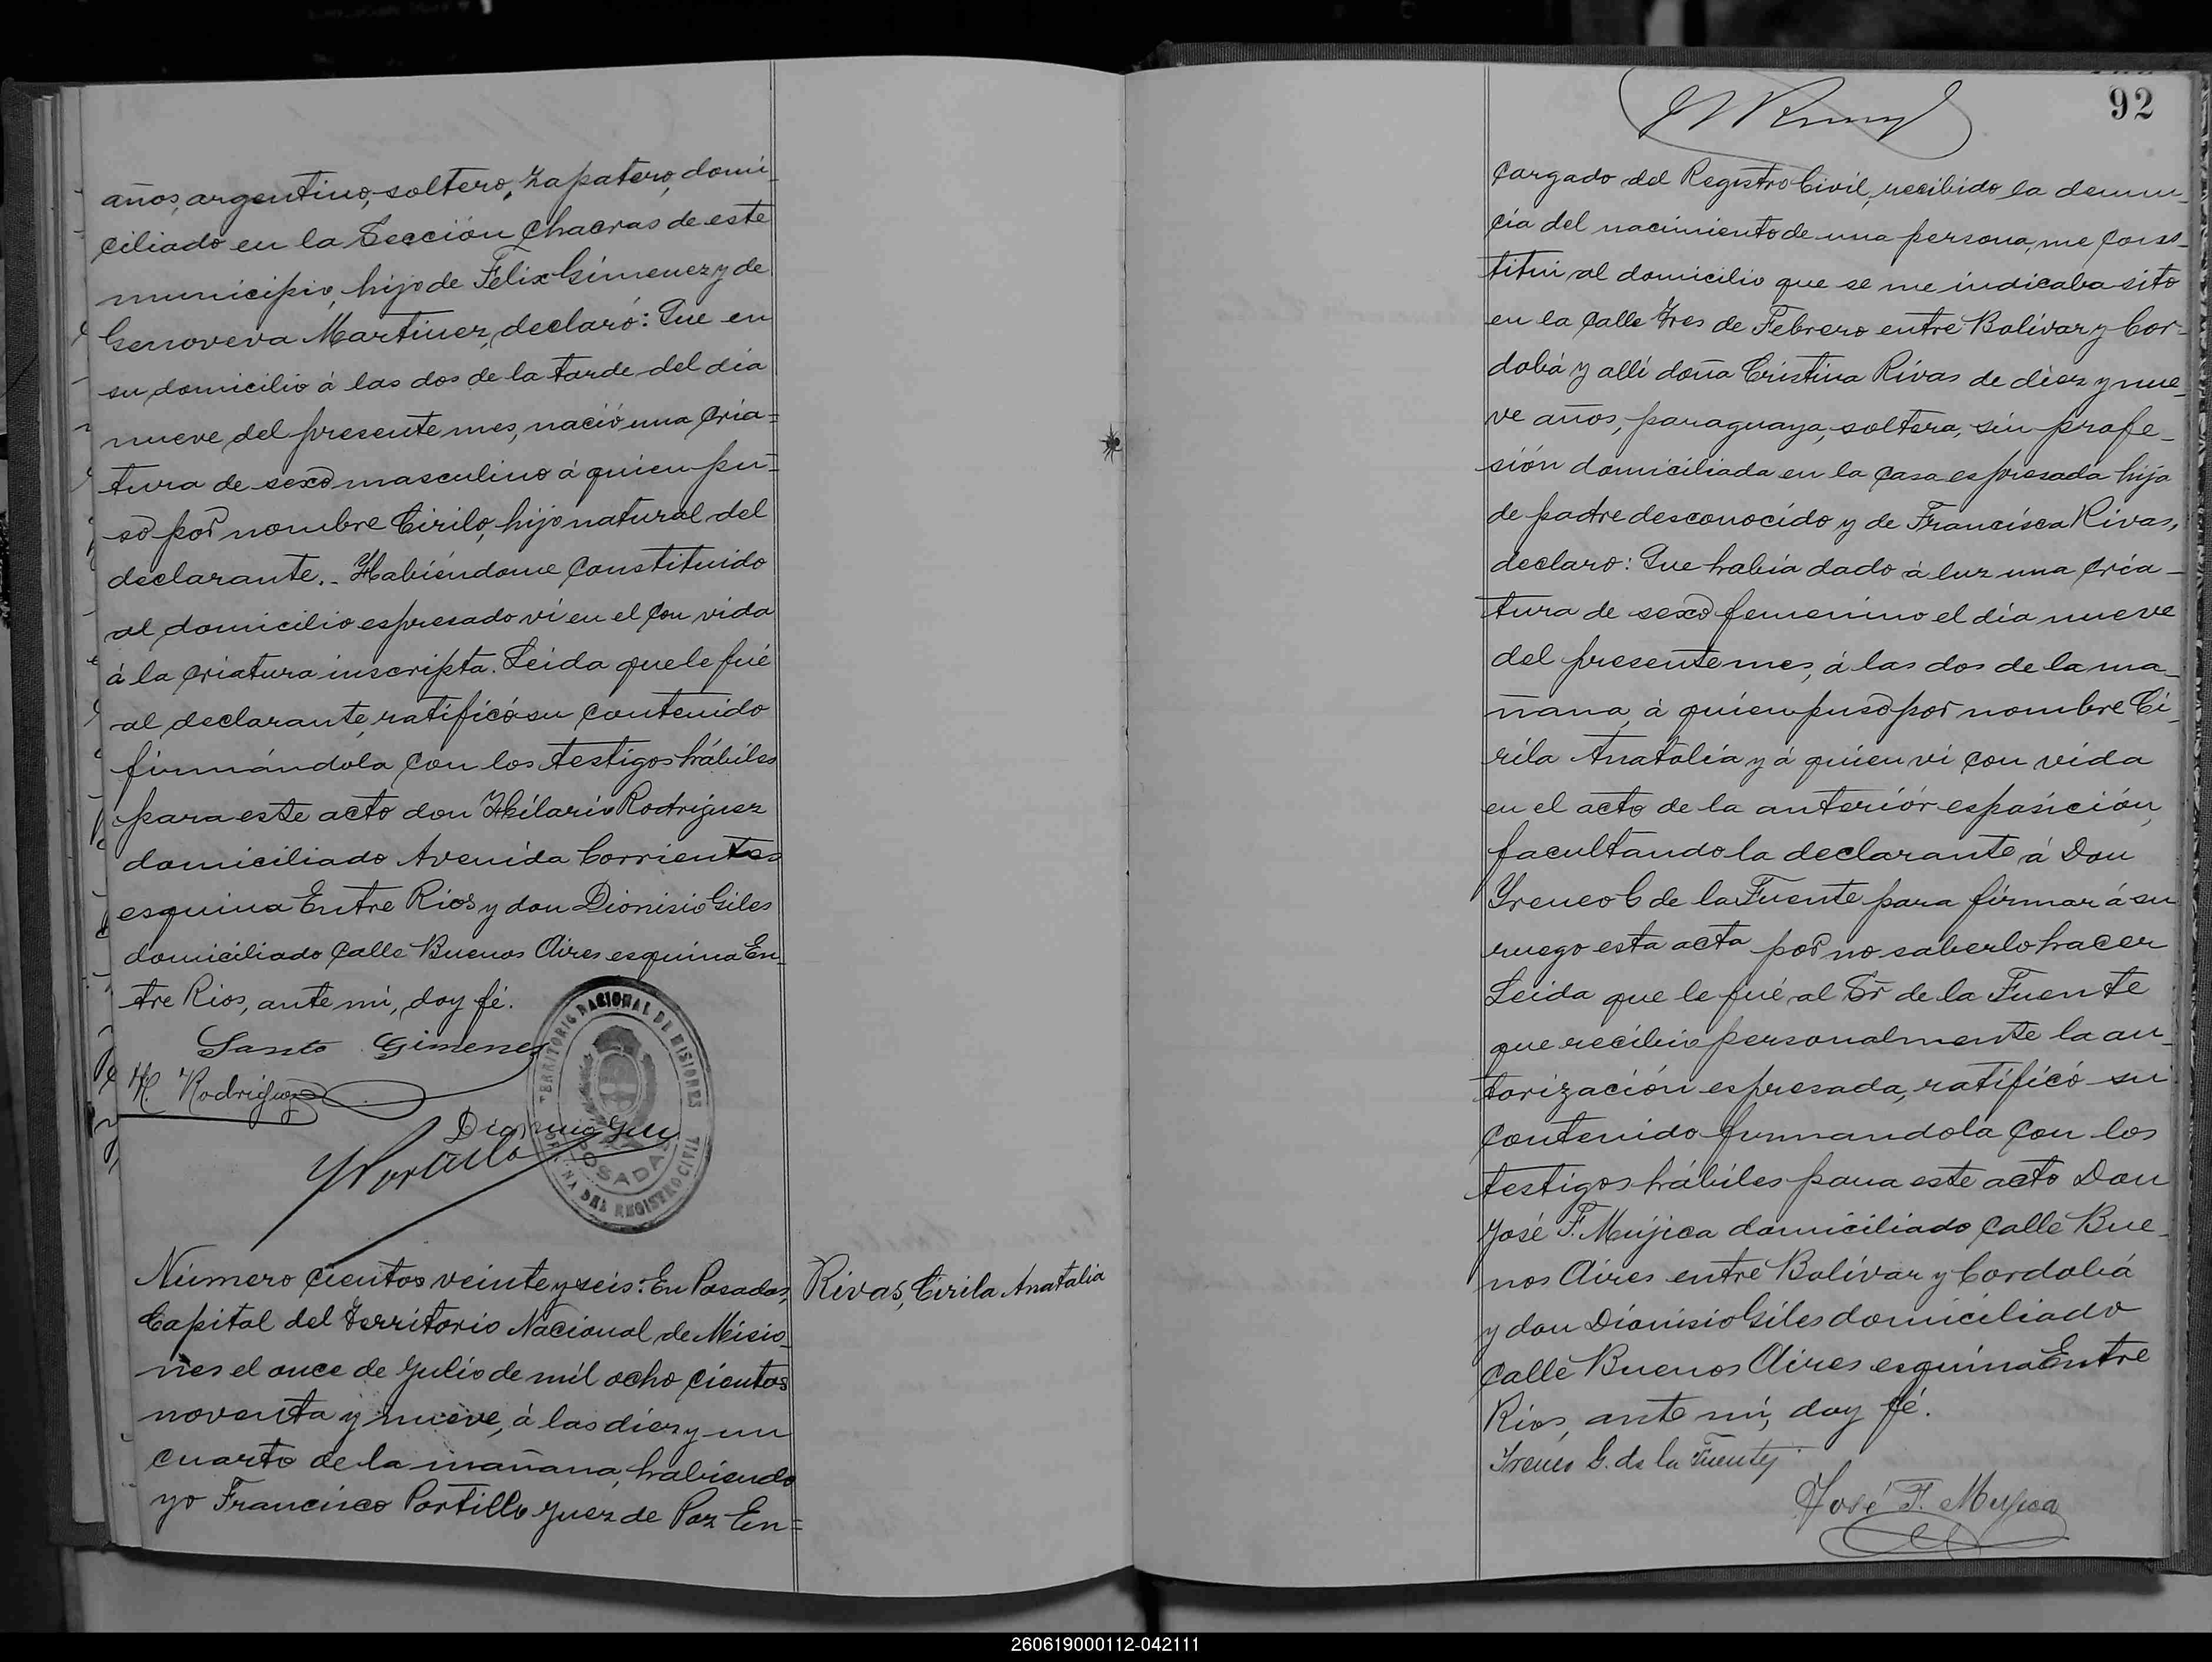 años, argentino, soltero, zapatero, domi_
ciliado en la Sección Chacras de este
municipio, hijo de Felix Gimenez y de
Genoveva Martinez, declaró: Que en
su domicilio á las dos de la tarde del dia
nueve del presente mes, nació una cria=
tura de sexo masculino á quien pu=
so por nombre Cirilo, hijo natural del
declarante._ Habiéndome constituido
al domicilio espresado ví en el con vida
á la criatura inscripta. Leida que le fué
al declarante, ratificó su contenido
firmándola con los testigos hábiles
para este acto don Hilario Rodriguez
domiciliado Avenida Corrientes
esquina Entre Rios y don Dionisio Giles
domiciliado calle Buenos Aires esquina En_
tre Rios, ante mi, doy fé.
Santo Gimenez
H. Rodriguez
TERRITORIO NACIONAL DE MISIONES
POSADAS
OFICINA DEL REGISTRO CIVIL
Número cientos veinte y seis: En Posadas,
Capital del Territorio Nacional de Misio_
nes el once de Julio de mil ocho cientos
noventa y nueve, á las diez y un
cuarto de la mañana, habiendo
yo Francisco Portillo Juez de Paz En=
Rivas, Cirila Anatalia
92
cargado del Registro Civil, recibido la denun_
cia del nacimiento de una persona, me cons_
titui al domicilio que se me indicaba sito
en la calle Tres de Febrero entre Bolívar y Cor=
dobá y allí doña Cristina Rivas de diez y nue_
ve años, paraguaya, soltera, sin profe_
sión domiciliada en la casa espresada hija
de padre desconocido y de Francisca Rivas,
declaro: Que había dado á luz una cria_
tura de sexo femenino el día nueve
del presente mes, á las dos de la ma_
ñana, á quien puso por nombre Ci_
rila Anatalia y á quien vi con vida
en el acto de la anteriór esposición,
facultando la declarante á Don
Yreneo G de la Fuente para firmar á su
ruego esta acta por no saberlo hacer
Leida que le fué al Sr de la Fuente
que recibió personalmente la au_
torización espresada, ratificó su
contenido firmandola con los
testigos hábiles para este acto Don
José F. Mújica domiciliado calle Bue_
nos Aires entre Bolívar y Cordobá
y don Dionisio Giles domiciliado
calle Buenos Aires esquina Entre
Rios, ante mi, doy fé.
Yreneo G. de la Fuente
José F. Mujica
260619000112-042111